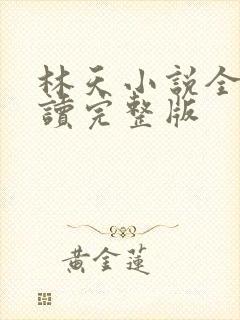 林天小説全
讀完整版
黃金蓮